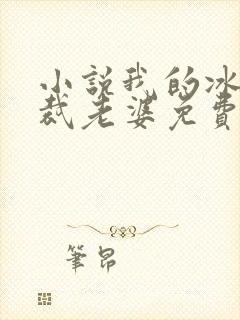 小說我的冰
裁老婆免費
筆昂